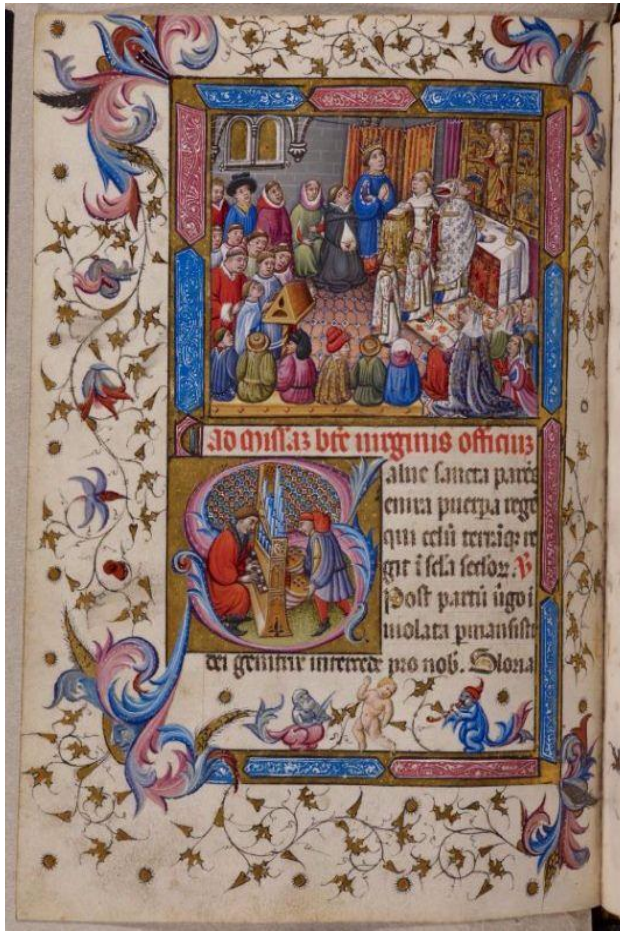 ad missaz bte uirginis officiuz
Salue sancta parēs
enixa puerpa rege
qui celū terrāq; re
git ī sc̄la sc̄lorꝝ. V
Post partū ūgo ī
uiolata pmansisti
dei genitrix intercede pro nob. Gloria